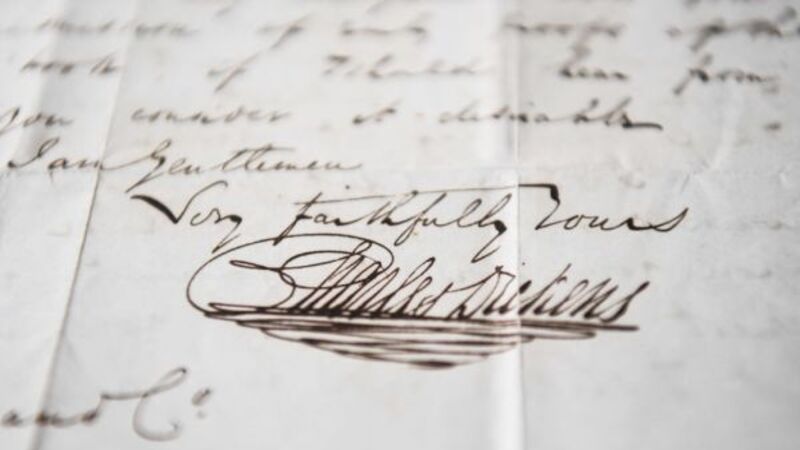 of any
week if I should hear from
you consider it desirable
I am Gentlemen
Very faithfully Yours
Charles Dickens
and Co.